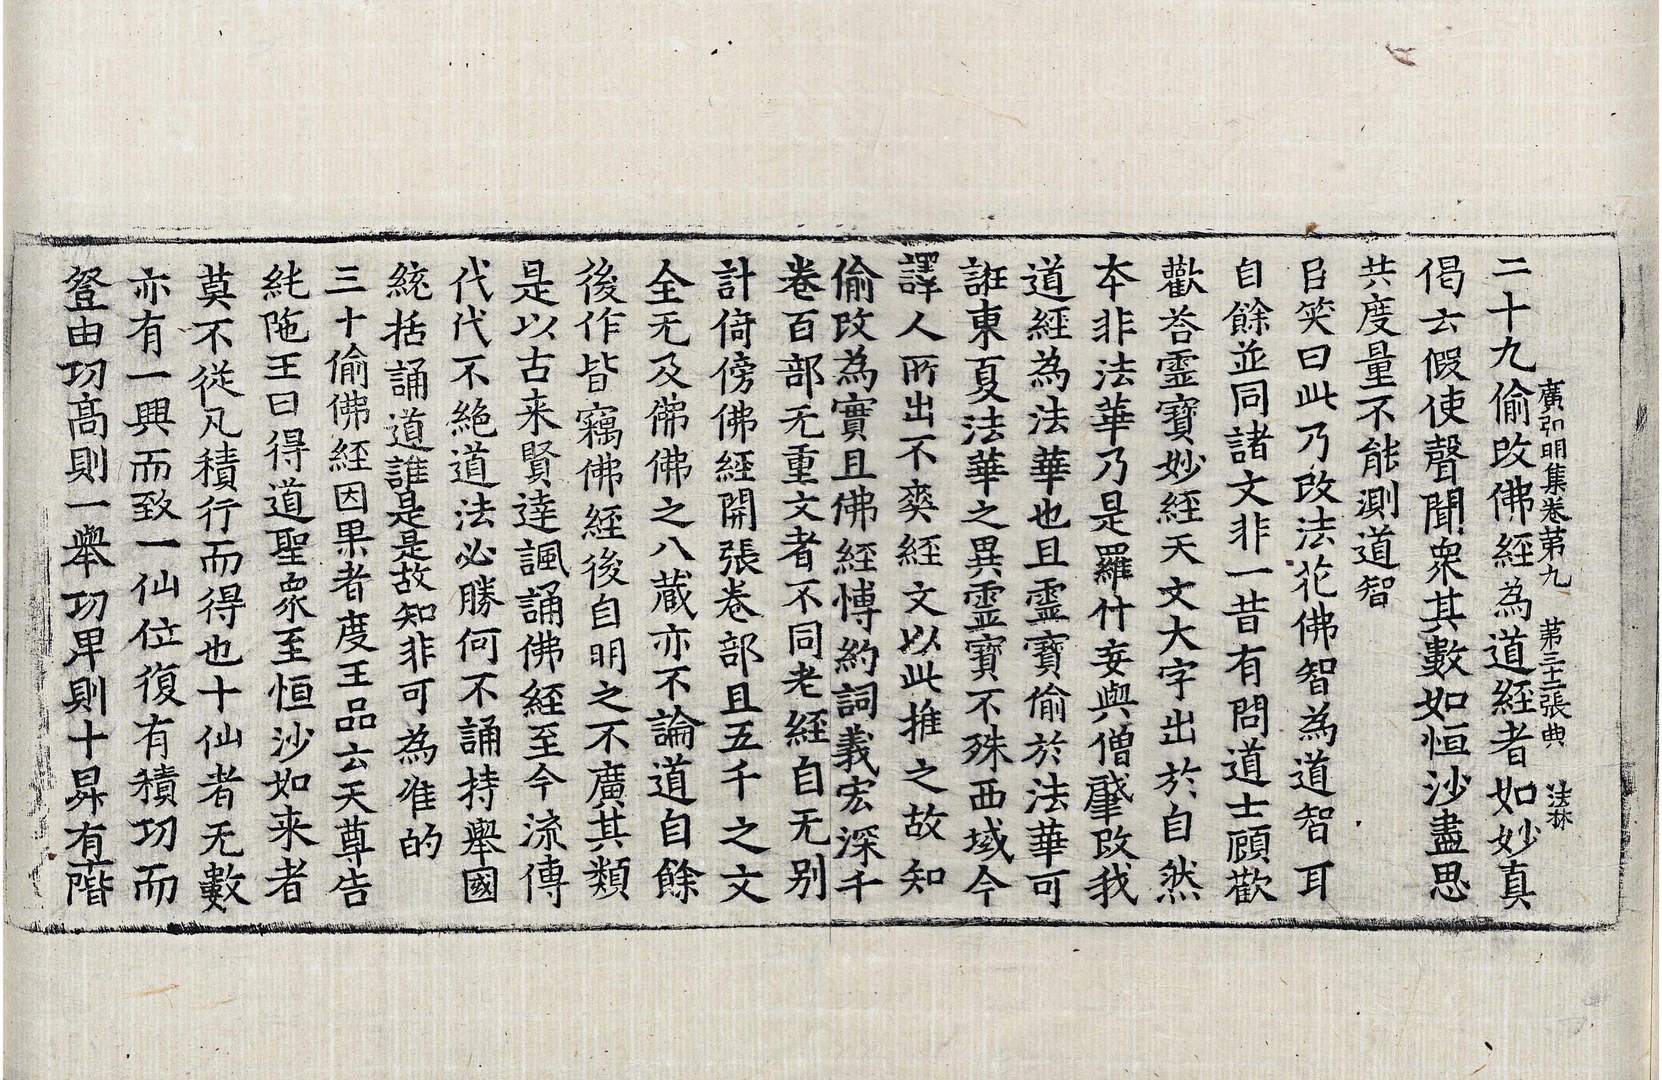 廣弘明集卷第九　第三十二張典　法林
二十九偷改佛經為道經者如妙真
偈云假使聲聞衆其數如恒沙盡思
共度量不能測道智
臣笑曰此乃改法花佛智為道智耳
自餘並同諸文非一昔有問道士顧歡
歡荅靈寶妙經天文大字出於自然
本非法華乃是羅什妄與僧肇改我
道經為法華也且靈寶偷於法華可
誑東夏法華之異靈寶不殊西域今
譯人所出不爽經文以此推之故知
偷改為實且佛經博約詞義宏深千
卷百部无重文者不同老經自无別
計倚傍佛經開張卷部且五千之文
全无及佛佛之八藏亦不論道自餘
後作皆竊佛經後自明之不廣其類
是以古来賢達諷誦佛經至今流傳
代代不絶道法必勝何不誦持舉國
統括誦道誰是是故知非可為准的
三十偷佛經因果者度王品云天尊告
純陁王曰得道聖衆至恒沙如来者
莫不從凡積行而得也十仙者无數
亦有一興而致一仙位復有積功而
登由功高則一舉功卑則十昇有階